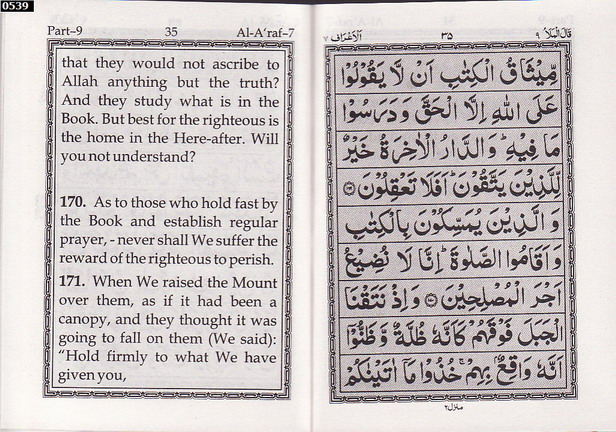 0539
Part–9 35 Al-A'raf–7
that they would not ascribe to
Allah anything but the truth?
And they study what is in the
Book. But best for the righteous is
the home in the Here-after. Will
you not understand?
170. As to those who hold fast by
the Book and establish regular
prayer, - never shall We suffer the
reward of the righteous to perish.
171. When We raised the Mount
over them, as if it had been a
canopy, and they thought it was
going to fall on them (We said):
“Hold firmly to what We have
given you,
قَالَ الْمَلَاُ ٩ ٣٥ اَلْاَعْرَاف ٧
مِّيْثَاقُ الْكِتٰبِ اَنْ لَّا يَقُوْلُوْا
عَلَى اللّٰهِ اِلَّا الْحَقَّ وَدَرَسُوْا
مَا فِيْهِ ؕ وَالدَّارُ الْاٰخِرَةُ خَيْرٌ
لِّلَّذِيْنَ يَتَّقُوْنَ ؕ اَفَلَا تَعْقِلُوْنَ ۝١٦٩
وَالَّذِيْنَ يُمَسِّكُوْنَ بِالْكِتٰبِ
وَاَقَامُوا الصَّلٰوةَ ؕ اِنَّا لَا نُضِيْعُ
اَجْرَ الْمُصْلِحِيْنَ ۝١٧٠ وَاِذْ نَتَقْنَا
الْجَبَلَ فَوْقَهُمْ كَاَنَّهٗ ظُلَّةٌ وَّظَنُّوْۤا
اَنَّهٗ وَاقِعٌۢ بِهِمْ ۚ خُذُوْا مَاۤ اٰتَيْنٰكُمْ
منزل ٢